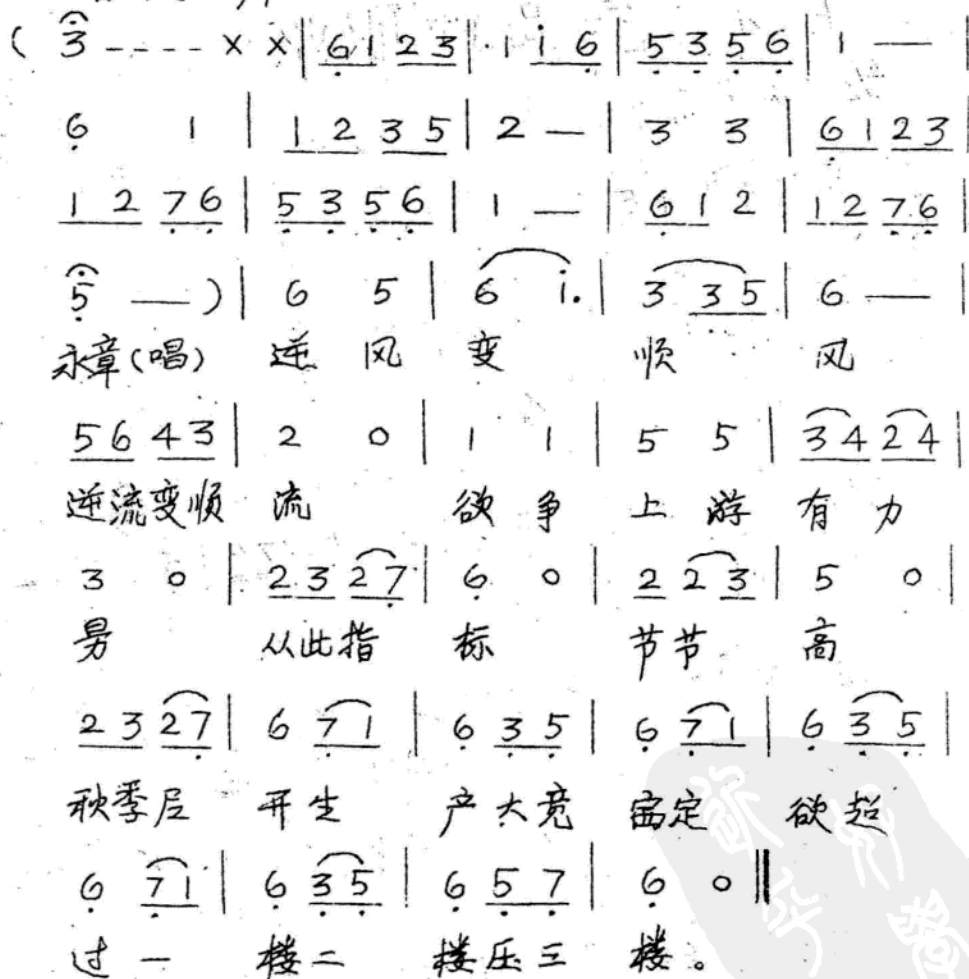 ( 3 - - - - × × | 6 1 2 3 | 1 i 6 | 5 3 5 6 | 1 — |
6 1 | 1 2 3 5 | 2 — | 3 3 | 6 1 2 3 |
1 2 7 6 | 5 3 5 6 | 1 — | 6 1 2 | 1 2 7 6 |
5 — ) | 6 5 | 6 i. | 3 3 5 | 6 — |
永章(唱) 逆 风 变 顺 风
5 6 4 3 | 2 0 | 1 1 | 5 5 | 3 4 2 4 |
逆流变顺 流 欲 争 上 游 有 力
3 0 | 2 3 2 7 | 6 0 | 2 2 3 | 5 0 |
男 从此指 标 节节 高
2 3 2 7 | 6 7 1 | 6 3 5 | 6 7 1 | 6 3 5 |
秋季 开生 产大竞 定 欲超
6 7 1 | 6 3 5 | 6 5 7 | 6 0 ‖
过 一 楼二 楼压三 楼。